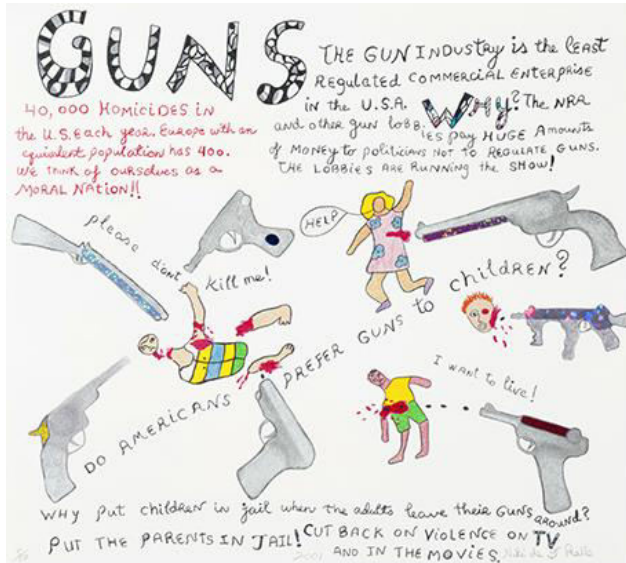 GUNS
THE GUN INDUSTRY is the LEAST
REGULATED COMMERCIAL ENTERPRISE
in the U.S.A. WHY? The NRA
and other gun lobb-
ies pay HUGE Amounts
of MONEY to politicians NOT to REGULATE GUNS.
THE LOBBIES ARE RUNNING the SHOW!
40,000 HOMICIDES IN
the U.S. Each year. Europe with an
equivalent population has 400.
WE THINK OF OURSELVES AS A
MORAL NATION!!
HELP
please don't
kill me!
DO AMERICANS PREFER GUNS to children?
I WANT to live!
WHY put children in jail when the adults leave their GUNS around?
PUT THE PARENTS IN JAIL! CUT BACK ON VIOLENCE ON TV
AND IN THE MOVIES.
2001 Niki de St Phalle